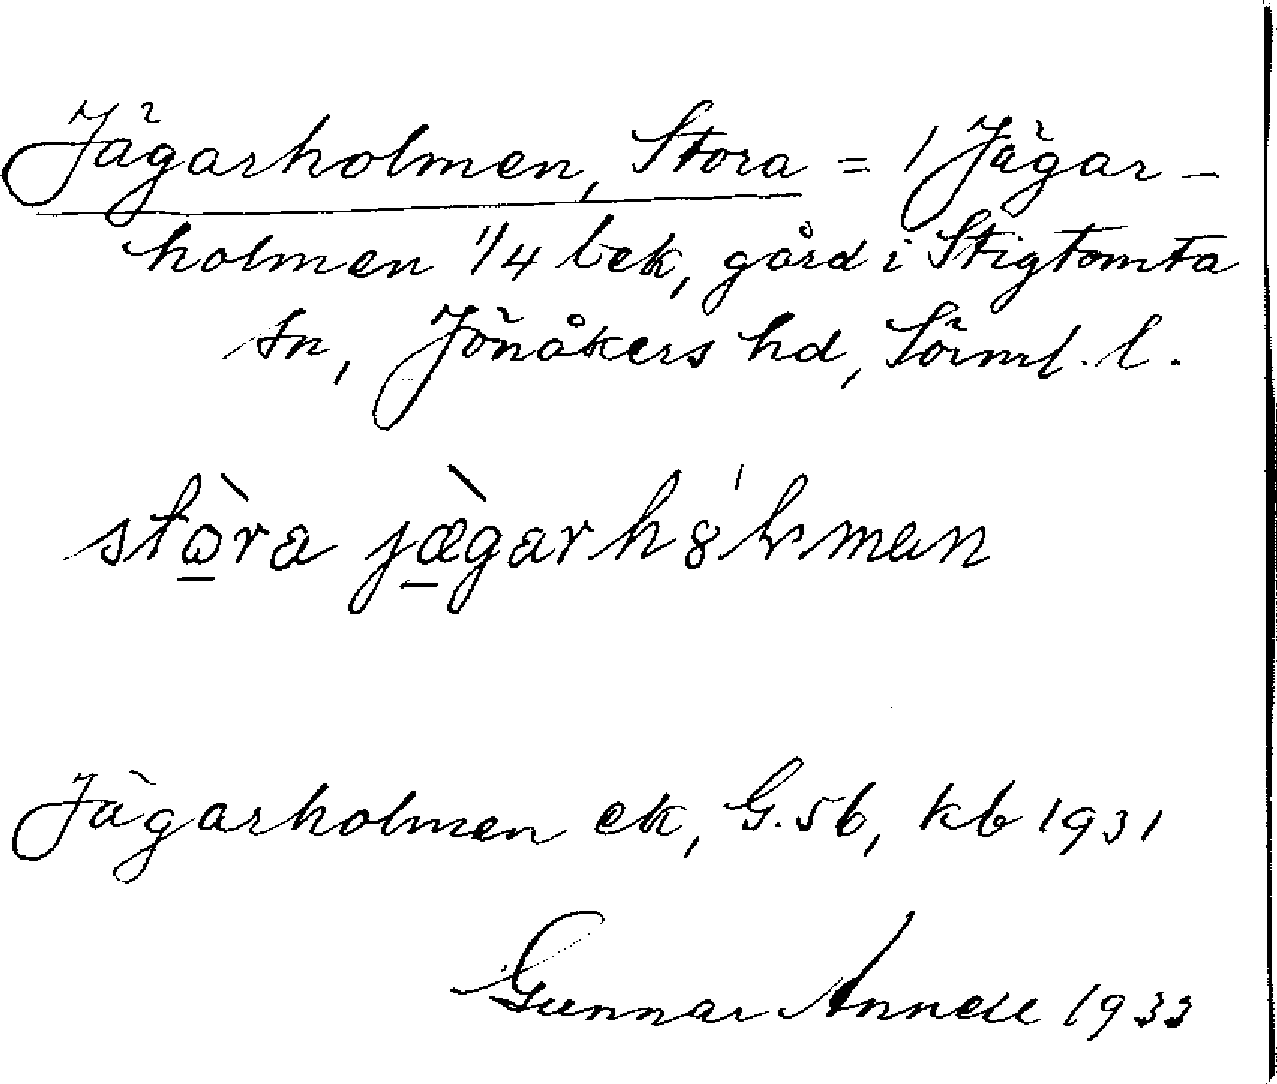 Jägarholmen, Stora = 1 Jägar-
holmen 1/4 bek, gård i Stigtomta
sn, Jönåkers hd, Sörml. l.
stò̱ra jæ̱̀garhȣ'lmen
Jägarholmen ek, G. 5b, kb 1931
Gunnar Annell 1933